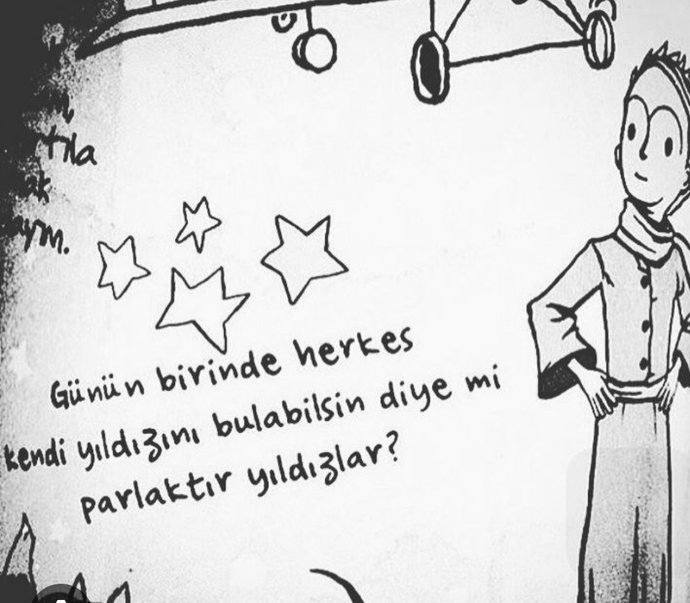 tıla
ak
Günün birinde herkes
kendi yıldızını bulabilsin diye mi
parlaktır yıldızlar?